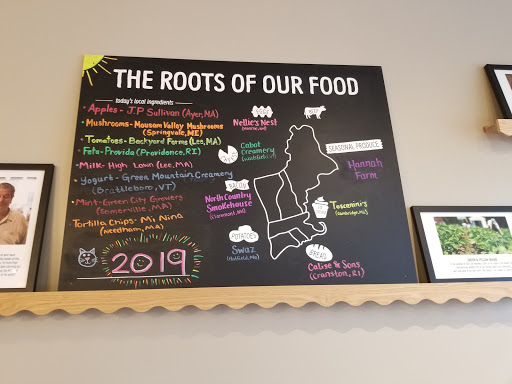 THE ROOTS OF OUR FOOD
today's local ingredients
Apples - J.P Sullivan (Ayer, MA)
Mushrooms - Mousam Valley Mushrooms
(Springvale, ME)
Tomatoes - Backyard Farms (Lee, MA)
Feta - Providia (Providence, RI)
Milk - High Lawn (Lee, MA)
Yogurt - Green Mountain Creamery
(Brattleboro, VT)
Mint - Green City Growers
(Somerville, MA)
Tortilla Chips - Mi Nina
(Needham, MA)
2019
Nellie's Nest
Cabot
creamery
BACON
North Country
Smokehouse
(Claremont, NH)
POTATOES
Swaz
(Hatfield, MA)
SEASONAL PRODUCE
Hannah
Farm
Toscanini's
(Cambridge, MA)
BREAD
Calise & Sons
(Cranston, RI)